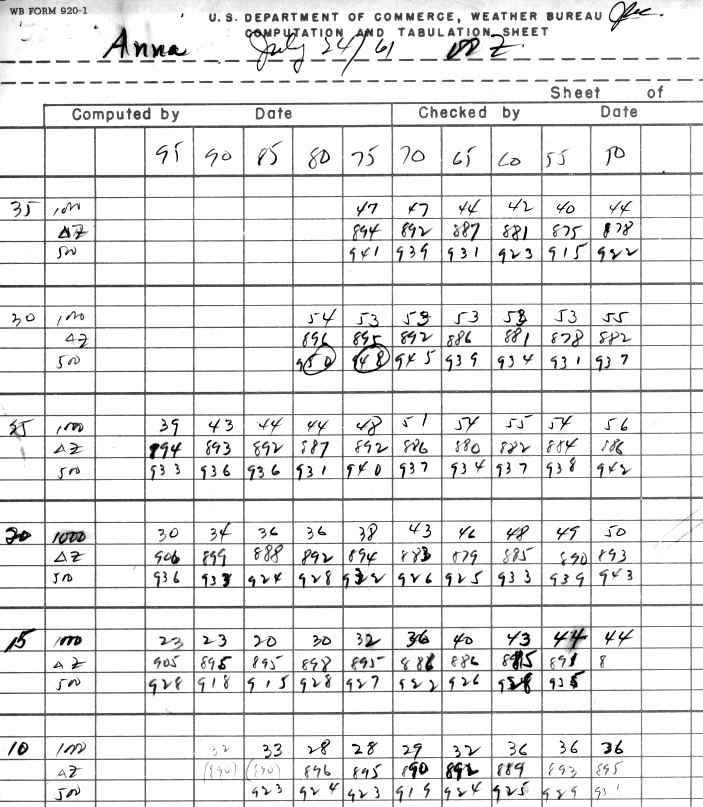 WB FORM 920-1
U. S. DEPARTMENT OF COMMERCE, WEATHER BUREAU
COMPUTATION AND TABULATION SHEET
Anna July 24/61 00Z
Sheet of
Computed by Date Checked by Date
95 90 85 80 75 70 65 60 55 50
35 1000 47 47 44 42 40 44
ΔZ 894 892 887 881 875 878
500 941 939 931 923 915 922
30 1000 54 53 53 53 53 53 55
ΔZ 896 895 892 886 881 878 882
500 950 948 945 939 934 931 937
25 1000 39 43 44 44 48 51 54 55 54 56
ΔZ 894 893 892 887 892 886 880 882 884 886
500 933 936 936 931 940 937 934 937 938 942
20 1000 30 34 36 36 38 43 46 48 49 50
ΔZ 906 899 888 892 894 883 879 885 890 893
500 936 933 924 928 932 926 925 933 939 943
15 1000 23 23 20 30 32 36 40 43 44 44
ΔZ 905 895 895 898 895 886 886 885 891 8
500 928 918 915 928 927 922 926 928 935
10 1000 32 33 28 28 29 32 36 36 36
ΔZ (890) (890) 896 895 890 892 889 893 895
500 923 924 923 919 924 925 929 931